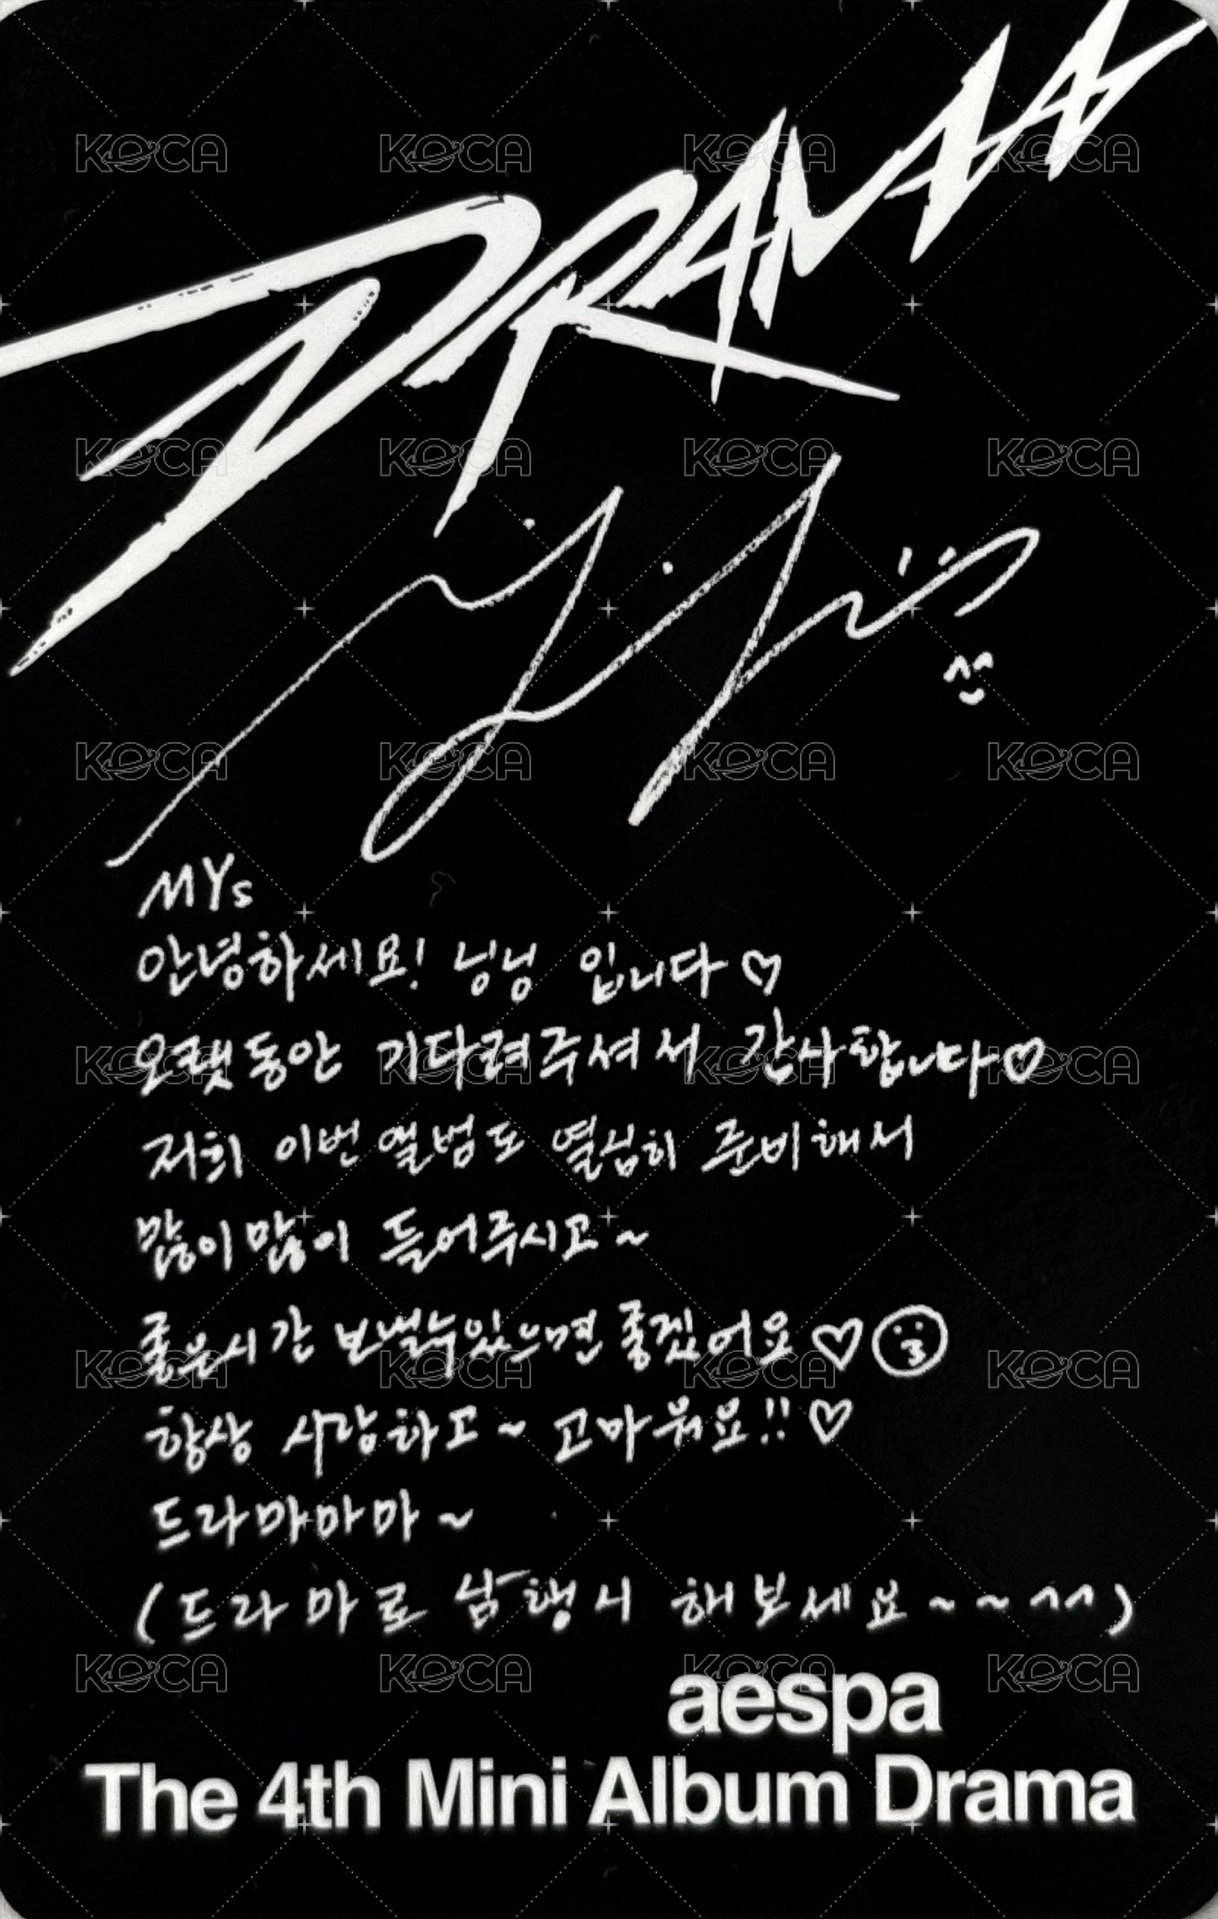 DRAMA
MYs
안녕하세요! 닝닝 입니다♡
오랫동안 기다려주셔서 감사합니다♡
저희 이번 앨범도 열심히 준비해서
많이많이 들어주시고~
좋은시간 보낼수있으면 좋겠어요♡
항상 사랑하고~ 고마워요!!♡
드라마마마~
(드라마로 삼행시 해보세요~~^^)
aespa
The 4th Mini Album Drama
KOCA